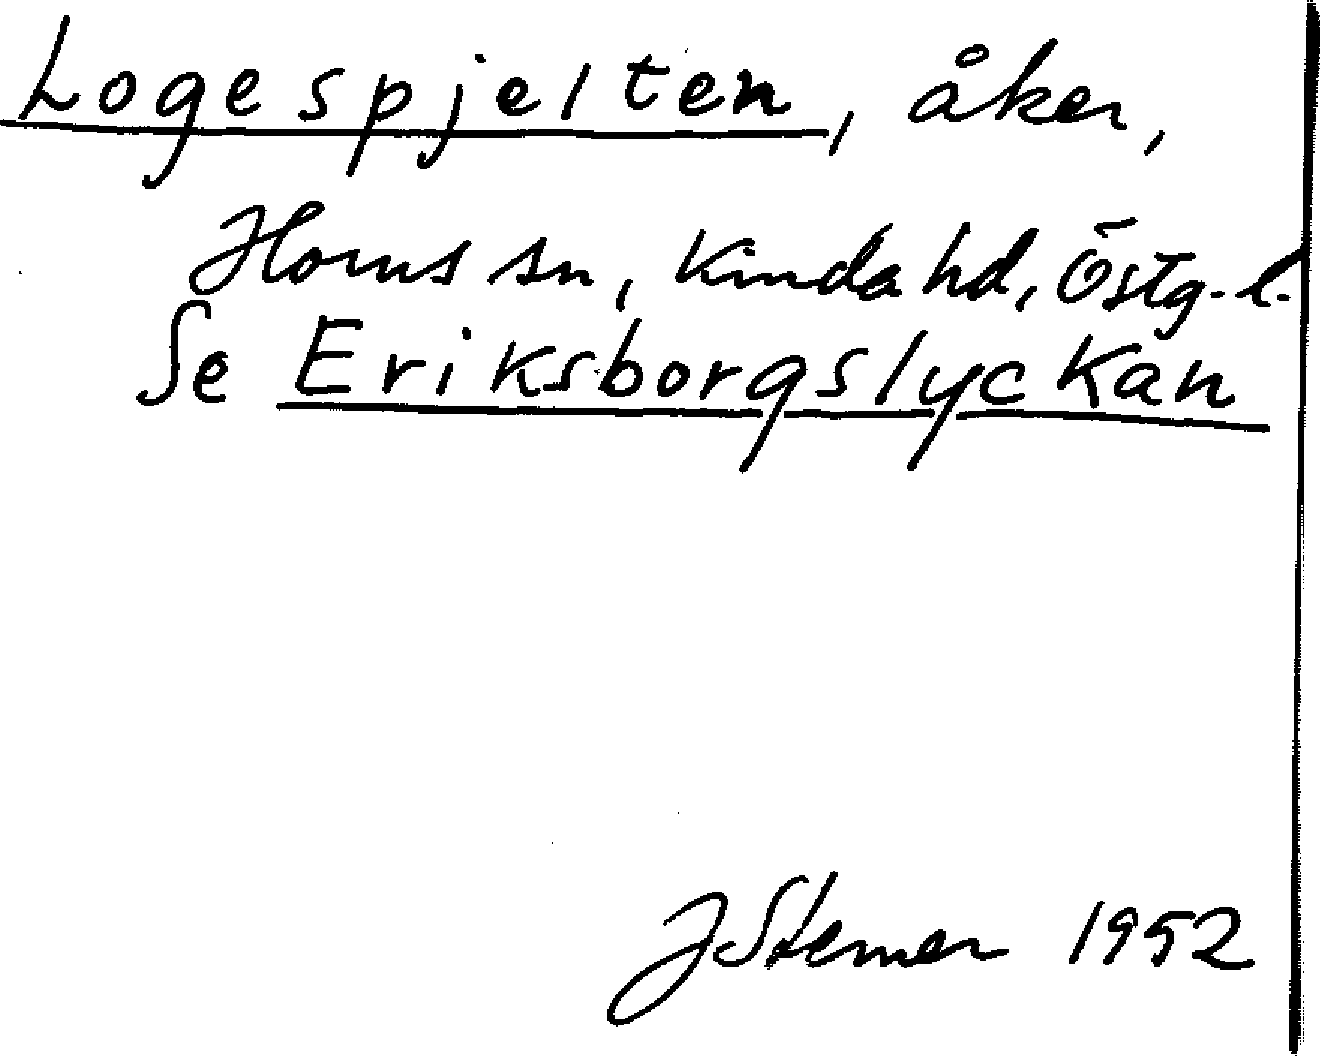 Logespjelten, åker,
Horns sn, Kinda hd, Östg.l.
Se Eriksborgslyckan
J Sterner 1952